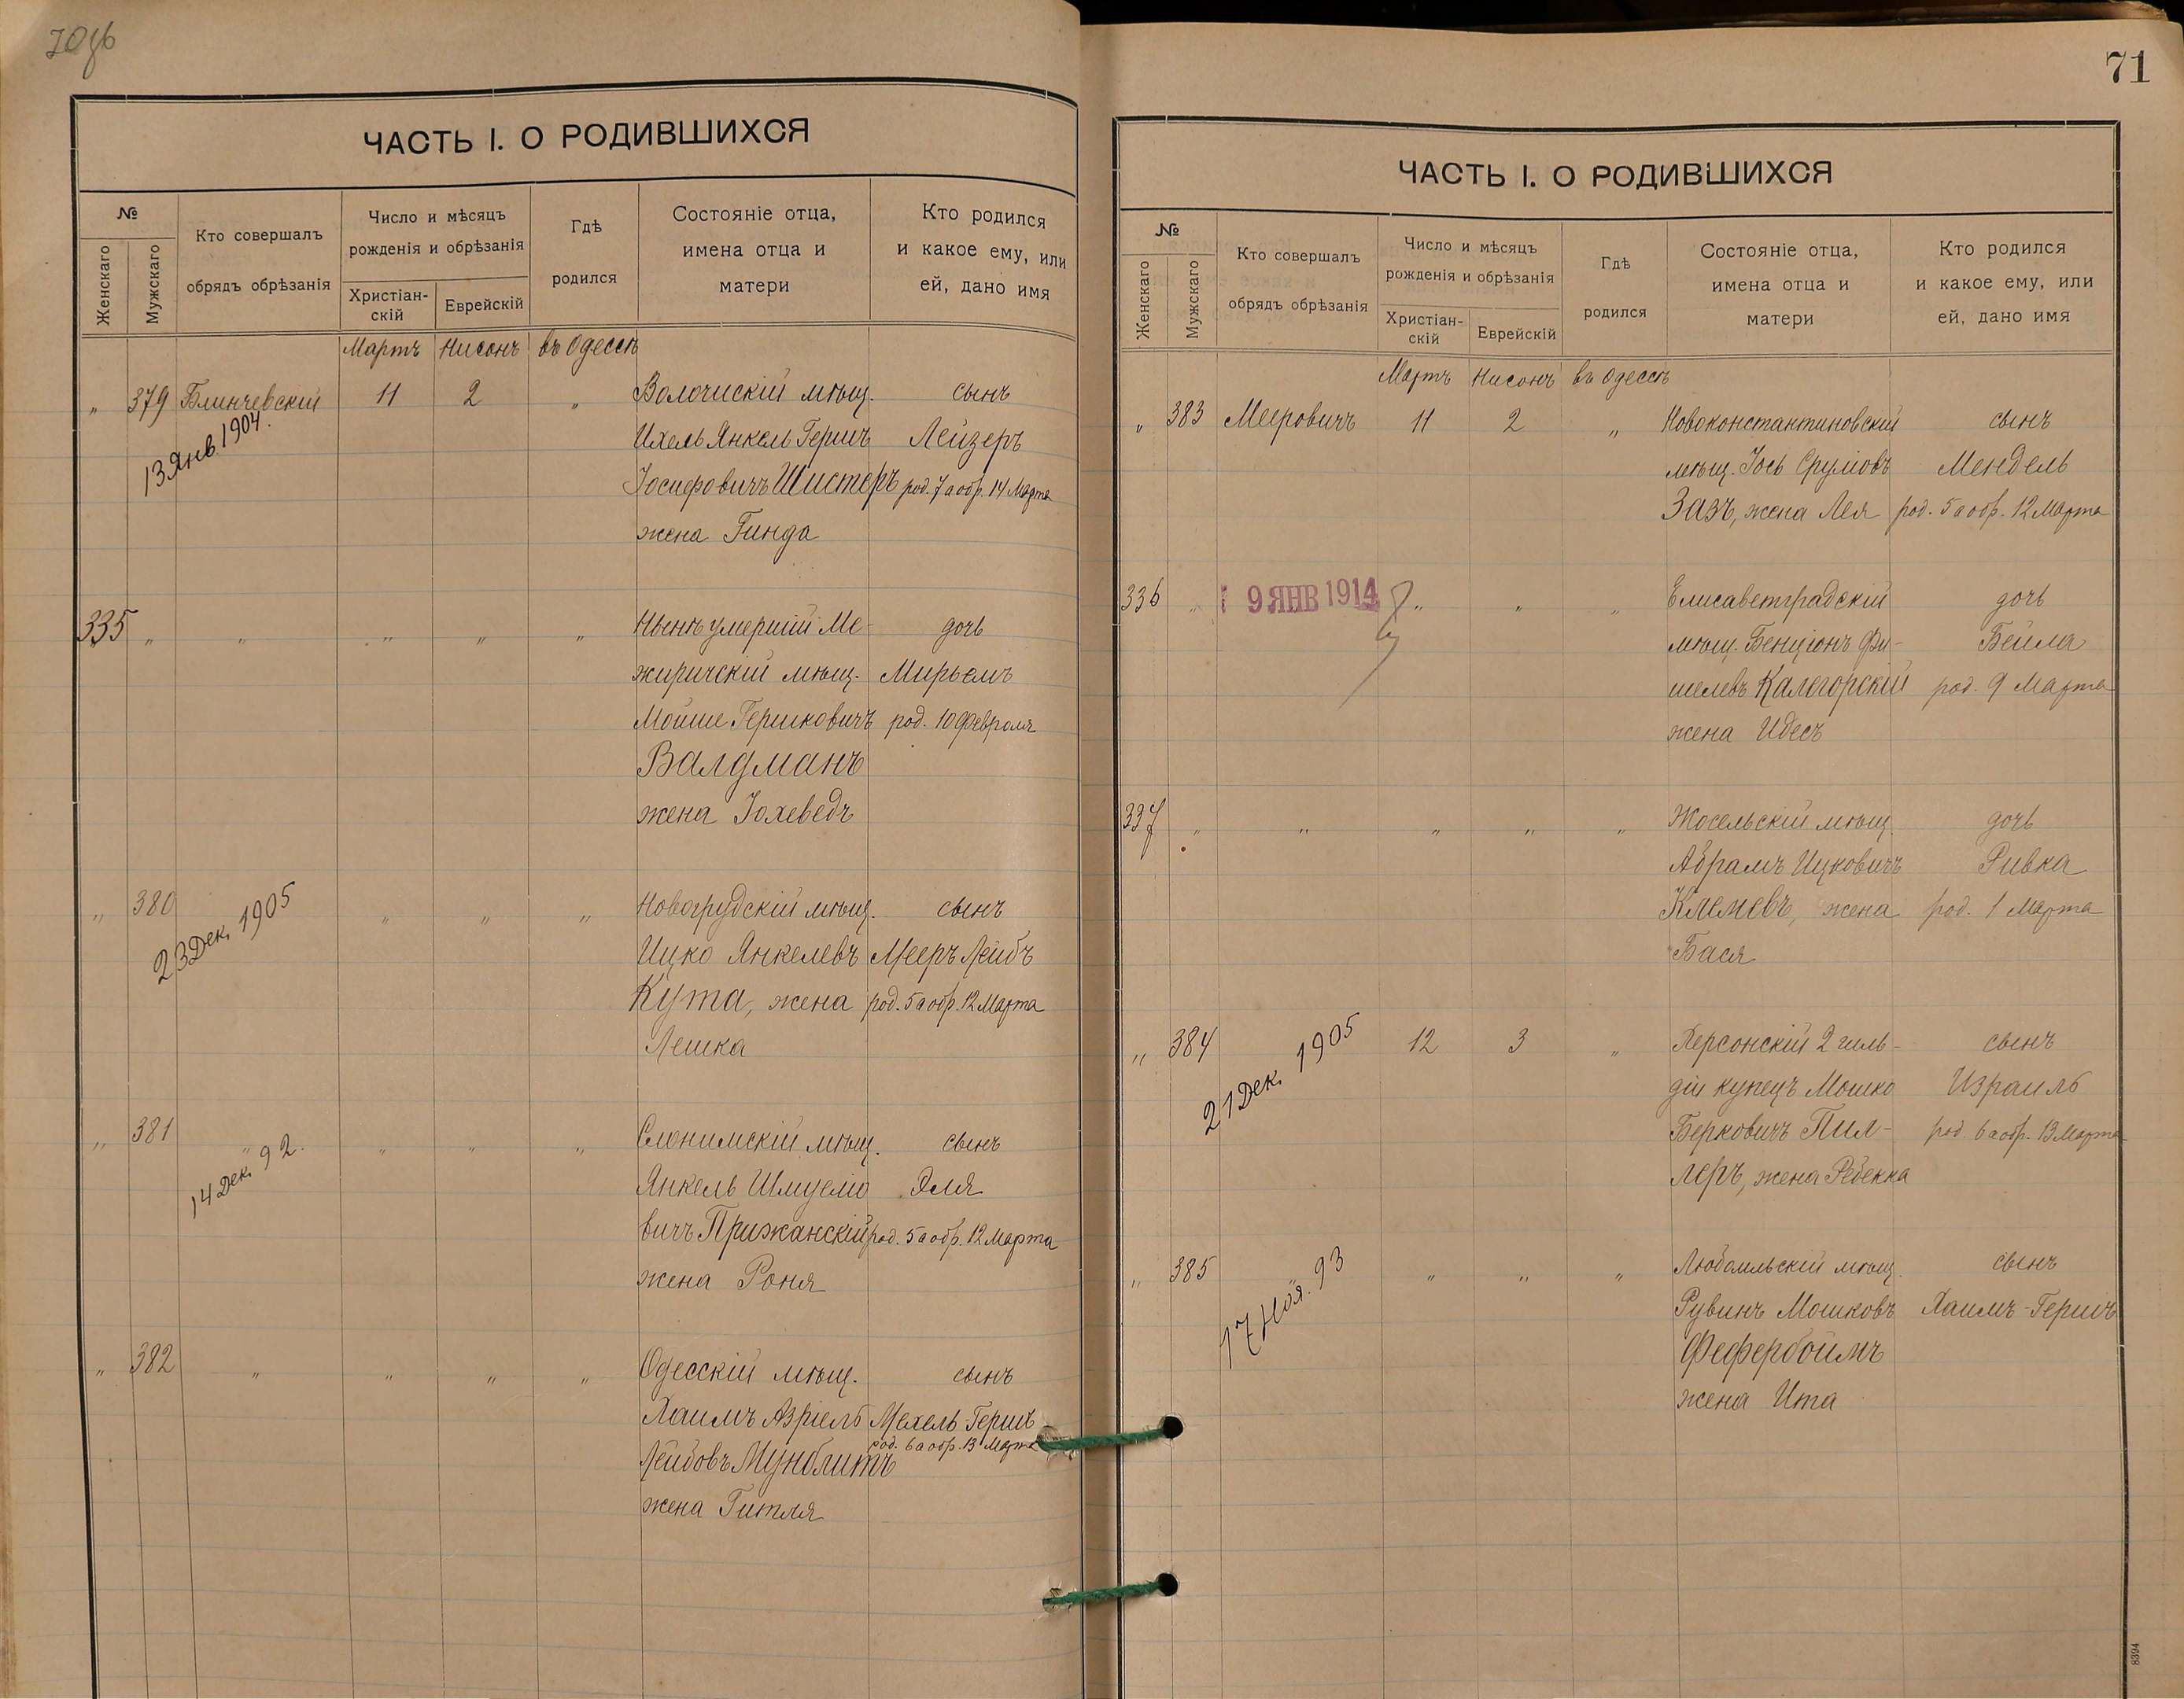 70об
ЧАСТЬ I. О РОДИВШИХСЯ
№
Женскаго
Мужскаго
Кто совершалъ
обрядъ обрѣзанія
Число и мѣсяцъ
рожденія и обрѣзанія
Христіан-
скій
Еврейскій
Гдѣ
родился
Состояніе отца,
имена отца и
матери
Кто родился
и какое ему, или
ей, дано имя
Мартъ Нисонъ въ Одессѣ
" 379 Блинчевскій 11 2 " Волочискій мѣщ. сынъ
13 Янв. 1904.
Ихель Янкель Гершъ Лейзеръ
Іосифовичъ Шистеръ род. 7 а обр. 14 Марта
жена Гинда
335 " " " " " Нынѣ умершій Ме- дочь
жиричскій мѣщ. Мирьемъ
Мойше Гершковичъ род. 10 Февраля
Валдманъ
жена Іохеведъ
" 380 " " " Новогрудскій мѣщ. сынъ
23 Дек. 1905
Ицко Янкелевъ Мееръ Лейбъ
Кута, жена род. 5 а обр. 12 Марта
Лешка
" 381 " " " " Слонимскій мѣщ. сынъ
14 Дек. 92.
Янкель Шмуело Эля
вичъ Прижанскій род. 5 а обр. 12 Марта
жена Роня
" 382 " " " " Одесскій мѣщ. сынъ
Хаимъ Азріель Мехель Гершъ
род. 6 а обр. 13 Марта
Лейбовъ Мунблитъ
жена Гитля
71
ЧАСТЬ I. О РОДИВШИХСЯ
№
Женскаго
Мужскаго
Кто совершалъ
обрядъ обрѣзанія
Число и мѣсяцъ
рожденія и обрѣзанія
Христіан-
скій
Еврейскій
Гдѣ
родился
Состояніе отца,
имена отца и
матери
Кто родился
и какое ему, или
ей, дано имя
Мартъ Нисонъ въ Одессѣ
" 383 Мееровичъ 11 2 " Новоконстантиновскій сынъ
мѣщ. Іось Сруліовъ Мендель
Зазъ, жена Лея род. 5 а обр. 12 Марта
336 " 9 ЯНВ 1914 " " " Елисаветградскій дочь
мѣщ. Бенціонъ Фи- Бейла
шелевъ Калегорскій род. 9 Марта
жена Идесъ
337 " " " " " Жосельскій мѣщ. дочь
Абрамъ Ицковичъ Ривка
Клемевъ, жена род. 1 Марта
Бася
" 384 12 3 " Херсонскій 2 гиль- сынъ
21 Дек. 1905
діи купецъ Мошко Израиль
Берковичъ Пил- род. 6 а обр. 13 Марта
леръ, жена Ребекка
" 385 " " " " Любомльскій мѣщ. сынъ
17 Ноя. 93
Рувинъ Мошковъ Хаимъ-Гершъ
Фефербоймъ
жена Ита
8394